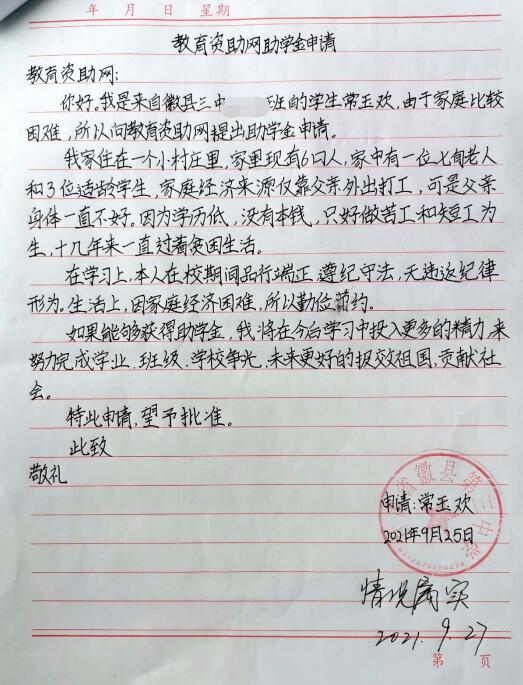 年 月 日 星期
教育资助网助学金申请
教育资助网:
你好。我是来自徽县三中 班的学生常玉欢,由于家庭比较
困难,所以向教育资助网提出助学金申请。
我家住在一个小村庄里,家里现有6口人,家中有一位七旬老人
和3位适龄学生,家庭经济来源仅靠父亲外出打工,可是父亲
身体一直不好。因为学历低,没有本钱,只好做苦工和短工为
生,十几年来一直过着贫困生活。
在学习上,本人在校期间品行端正,遵纪守法,无违返纪律
形为。生活上,因家庭经济困难,所以勤俭节约。
如果能够获得助学金,我将在今后学习中投入更多的精力,来
努力完成学业,班级、学校争光,未来更好的报效祖国,贡献社
会。
特此申请,望予批准。
此致
敬礼
省徽县第三中学
申请:常玉欢
2021年9月25日
情况属实
2021.9.27
第 页